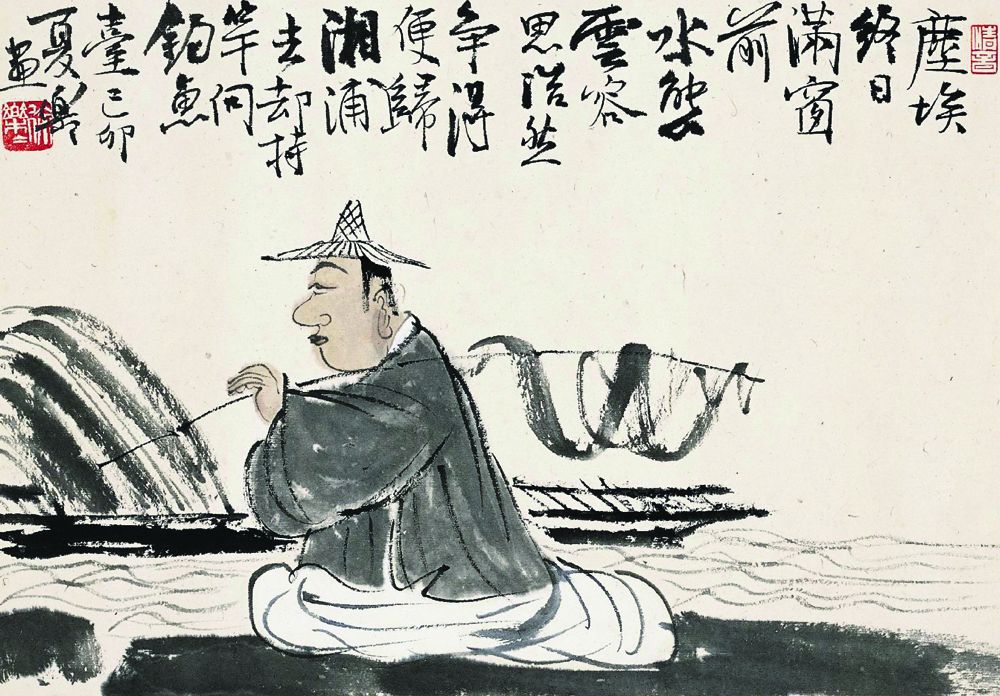 塵埃
終日
滿窗
前
水態
雲容
思浩然
争得
便歸
湘浦
去却持
竿
釣魚
臺己卯
夏樂
畫